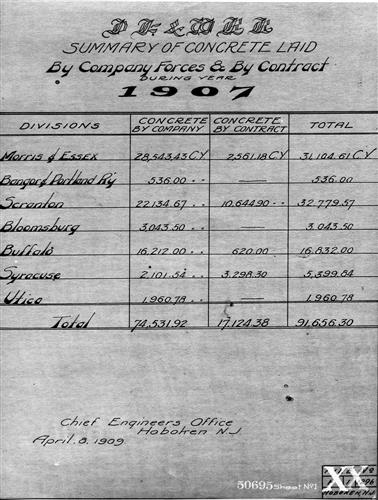 D.L.&W.R.R.
SUMMARY OF CONCRETE LAID
By Company Forces & By Contract
DURING YEAR
1907
DIVISIONS CONCRETE BY COMPANY CONCRETE BY CONTRACT TOTAL
Morris & Essex 28,543.43 CY 2,561.18 CY 31,104.61 CY
Bangor & Portland Ry 536.00 " " — 536.00
Scranton 22,134.67 " " 10,644.90 " " 32,779.57
Bloomsburg 3,043.50 " " — 3,043.50
Buffalo 16,212.00 " " 620.00 16,832.00
Syracuse 2,101.54 " " 3,298.30 5,399.84
Utica 1,960.78 " " — 1,960.78
Total 74,531.92 17,124.38 91,656.30
Chief Engineers Office
Hoboken N.J.
April. 8. 1909.
50695 Sheet No 1
XX
HOBOKEN, N.J.